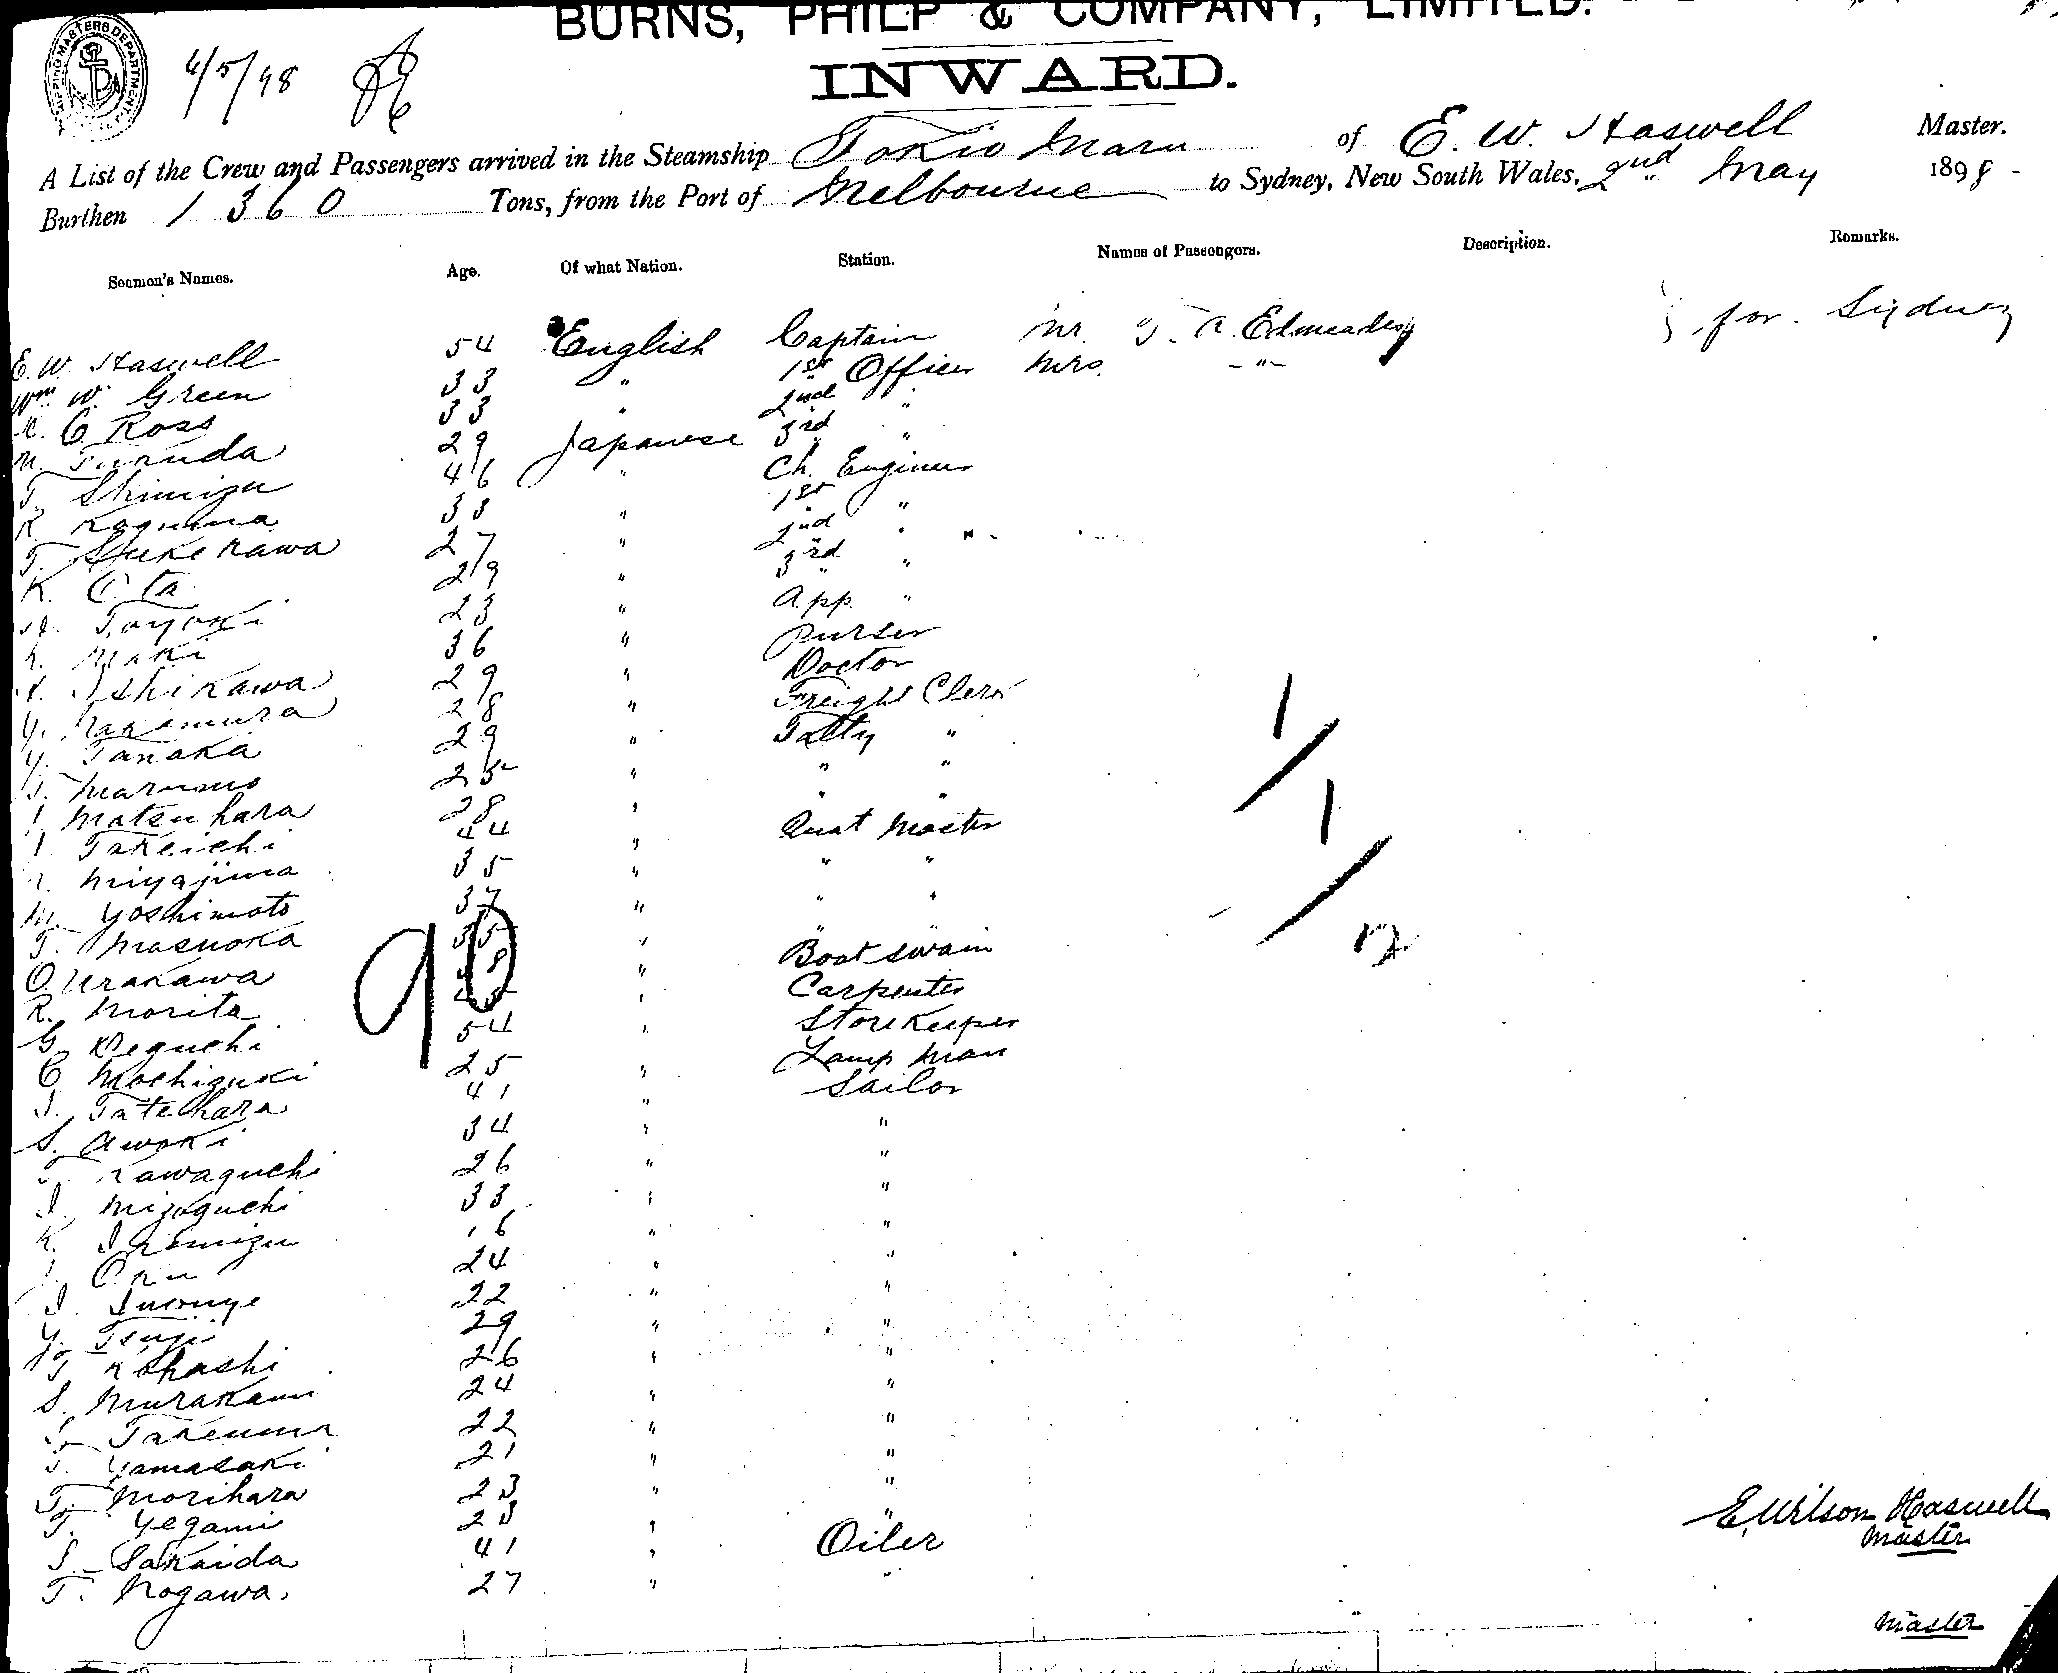 BURNS, PHILP & COMPANY, LIMITED.
SHIPPING MASTERS DEPARTMENT
4/5/98
INWARD.
A List of the Crew and Passengers arrived in the Steamship Tokio Maru of E. W. Haswell Master.
Burthen 1360 Tons, from the Port of Melbourne to Sydney, New South Wales, 2nd May 1898
Seamen's Names. Age. Of what Nation. Station. Names of Passengers. Description. Remarks.
E. W. Haswell 54 English Captain Mr. T. A. for Sydney
Wm W. Green 33 " 1st Officer Mrs. "
C Ross 33 " 2nd "
M Furuda 29 Japanese 3rd "
T. Shimizu 46 " Ch. Engineer
R Kaguma 33 " 1st "
T. Sukekawa 27 " 2nd "
K. Ota 29 " 3rd "
Toyoki 23 " App. "
Maki 36 " Purser
Ishikawa 29 " Doctor
Y. Nakamura 28 " Freight Clerk
Y. Tanaka 29 " Tally "
T. Marumo 25 " " "
Matsuhara 28 " " "
Takeichi 44 " Quat Master
Miyajima 35 " " "
M. Yoshimoto 37 " " "
T. Masuoka 35 " " "
O Urakawa " Boatswain
R. Morita " Carpenter
G. Deguchi 54 " Storekeeper
C. Mochizuki 25 " Lamp Man
I. Tatehara 41 " Sailor
S. Awoki 34 " "
T. Kawaguchi 26 " "
I. Mizoguchi 33 " "
K. Shimizu 16 " "
Oku 24 " "
I. Inouye 22 " "
Y. Tsuji 29 " "
T Kohashi 26 " "
S. Murakami 24 " "
Takeuma 22 " "
T. Yamasaki 21 " "
T. Morihara 23 " "
T. Yegami 23 " "
S. Sakaida 41 " Oiler
T. Nogawa. 27 " "
90
E. Wilson Haswell
Master
Master